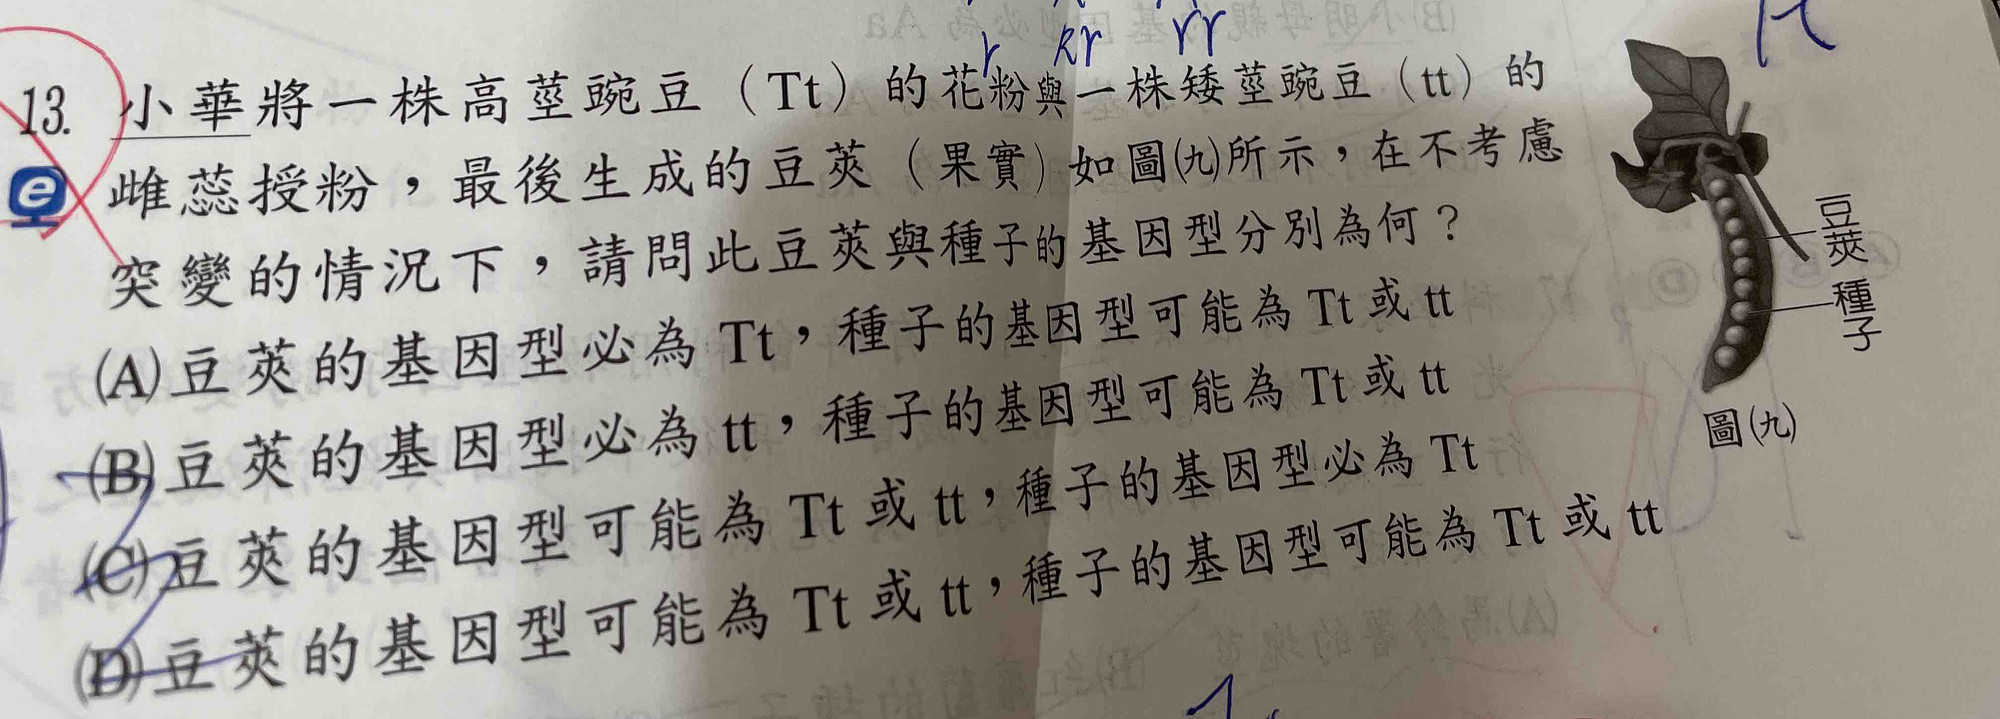 r Rr rr
13. 小華將一株高莖豌豆（Tt）的花粉與一株矮莖豌豆（tt）的
e 雌蕊授粉，最後生成的豆莢（果實）如圖㈨所示，在不考慮
突變的情況下，請問此豆莢與種子的基因型分別為何？
(A)豆莢的基因型必為 Tt，種子的基因型可能為 Tt 或 tt
(B)豆莢的基因型必為 tt，種子的基因型可能為 Tt 或 tt
(C)豆莢的基因型可能為 Tt 或 tt，種子的基因型必為 Tt
(D)豆莢的基因型可能為 Tt 或 tt，種子的基因型可能為 Tt 或 tt
豆莢
種子
圖㈨